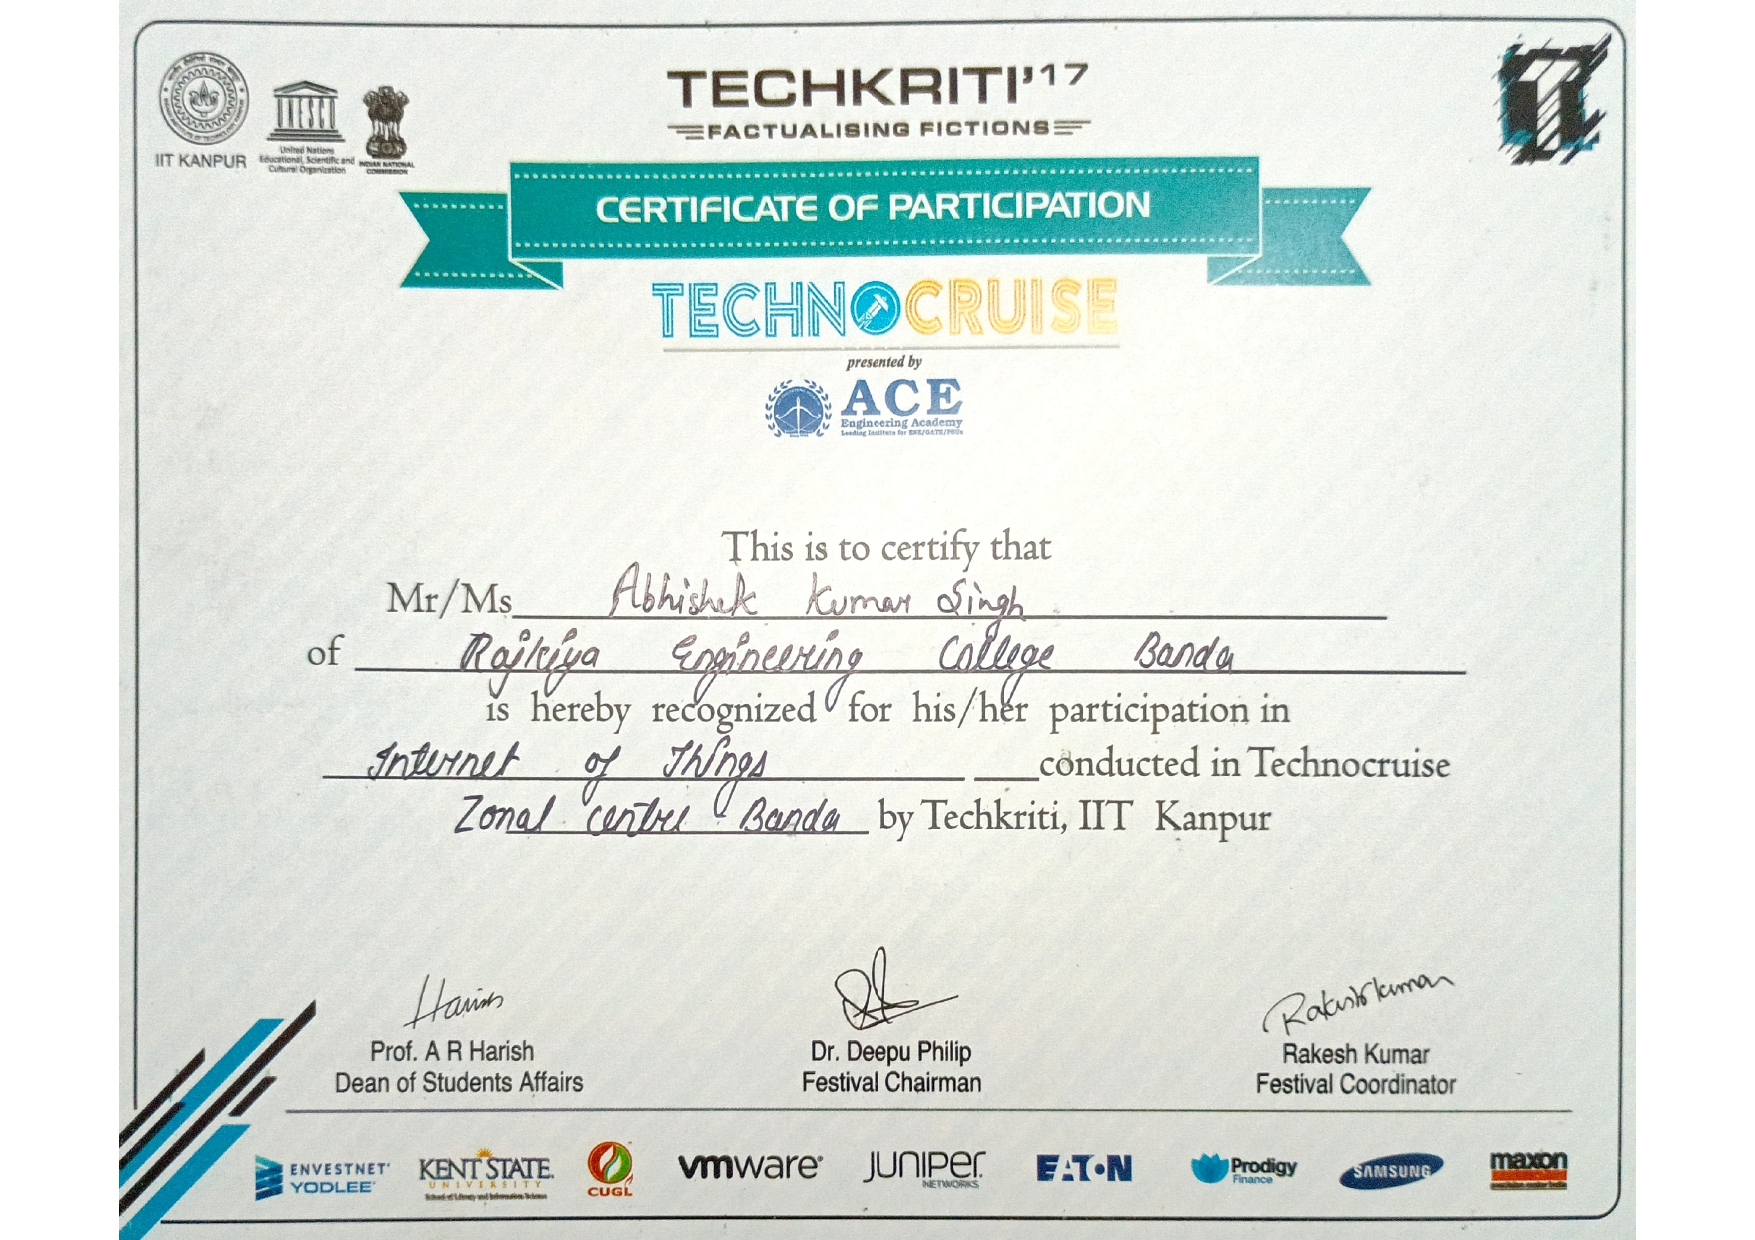 TECHKRITI'17
FACTUALISING FICTIONS
IIT KANPUR
UNESCO
United Nations
Educational, Scientific and
Cultural Organization
INDIAN NATIONAL
COMMISSION
CERTIFICATE OF PARTICIPATION
TECHNOCRUISE
presented by
ACE
Engineering Academy
Leading Institute for ESE/GATE/PSUs
This is to certify that
Mr/Ms Abhishek Kumar Singh
of Rajkiya Engineering College Banda
is hereby recognized for his/her participation in
Internet of Things conducted in Technocruise
Zonal centre Banda by Techkriti, IIT Kanpur
Harish
Rakesh Kumar
Prof. A R Harish
Dean of Students Affairs
Dr. Deepu Philip
Festival Chairman
Rakesh Kumar
Festival Coordinator
ENVESTNET
YODLEE
KENT STATE
UNIVERSITY
School of Library and Information Science
CUGL
vmware
JUNIPER
NETWORKS
EATON
Prodigy
Finance
SAMSUNG
maxon